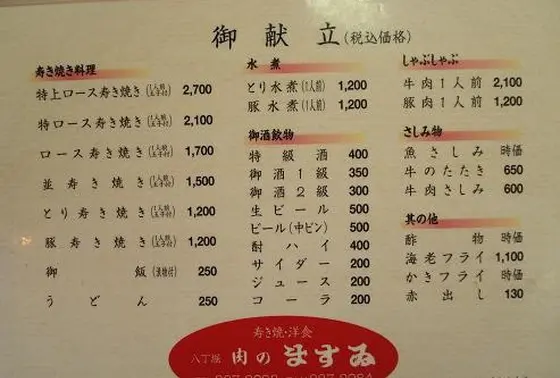 御献立(税込価格)
寿き焼き料理
特上ロース寿き焼き(1人前玉子付) 2,700
特ロース寿き焼き(1人前玉子付) 2,100
ロース寿き焼き(1人前玉子付) 1,700
並寿き焼き(1人前玉子付) 1,500
とり寿き焼き(1人前玉子付) 1,200
豚寿き焼き(1人前玉子付) 1,200
御飯(漬物付) 250
うどん 250
水煮
とり水煮(1人前) 1,200
豚水煮(1人前) 1,200
御酒飲物
特級酒 400
御酒1級 350
御酒2級 300
生ビール 500
ビール(中ビン) 500
酎ハイ 400
サイダー 200
ジュース 200
コーラ 200
しゃぶしゃぶ
牛肉1人前 2,100
豚肉1人前 1,200
さしみ物
魚さしみ 時価
牛のたたき 650
牛肉さしみ 600
其の他
酢物 時価
海老フライ 1,100
かきフライ 時価
赤出し 130
寿き焼・洋食
八丁堀 肉のますゐ